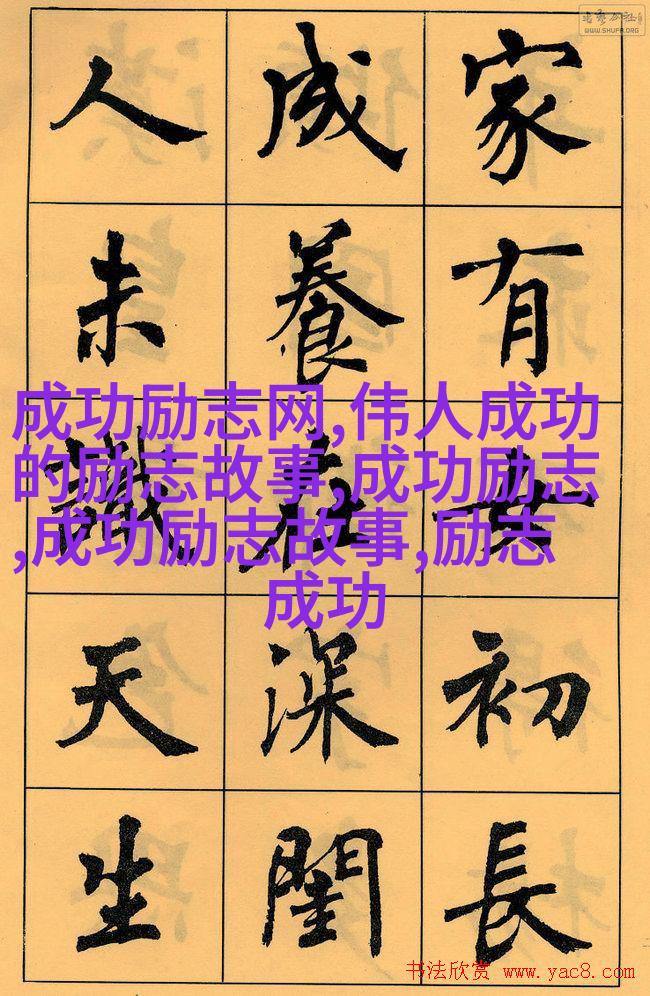 WWW.SHUFA.ORG
家有女初長
成養在深閨
人未識天生
成功励志网,伟人成功
的励志故事,成功励志
,成功励志故事,励志
成功
书法欣赏 www.yac8.com